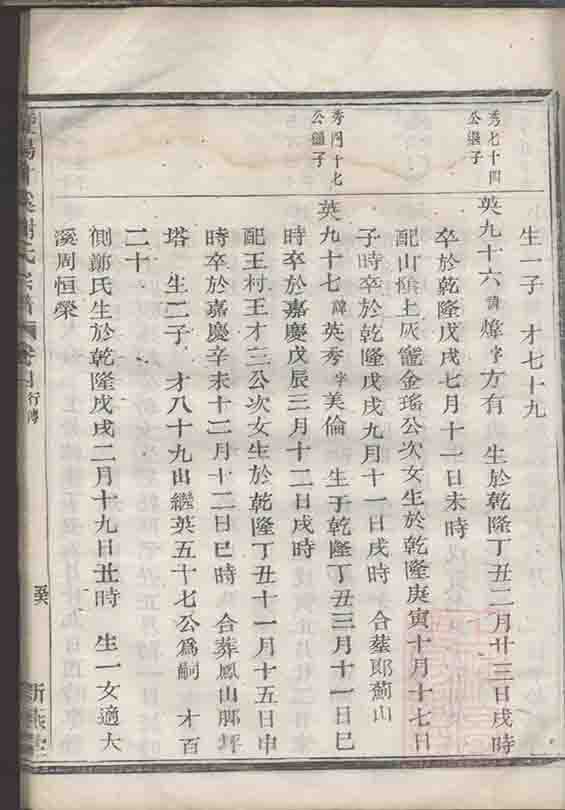 生一子 才七十九
秀七十四
公繼子
英九十六諱燦字方有 生於乾隆丁丑二月廿三日戌時
卒於乾隆戊戌七月十一日未時
配山隂上灰竈金瑤公次女生於乾隆庚寅十月十七日
子時卒於乾隆戊戌九月十一日戌時 合塟郎薊山
秀四十七
公繼子
英九十七諱英秀字美倫 生于乾隆丁丑三月十一日巳
時卒於嘉慶戊辰三月十二日戌時
配王村王才三公次女生於乾隆丁丑十一月十五日申
時卒於嘉慶辛未十二月十二日巳時 合葬鳳山腳坪
塔 生二子 才八十九出繼英五十七公爲嗣 才百
二十
側鄭氏生於乾隆戊戌二月十九日丑時 生一女適大
溪周恒榮
氏宗譜 卷 行傳